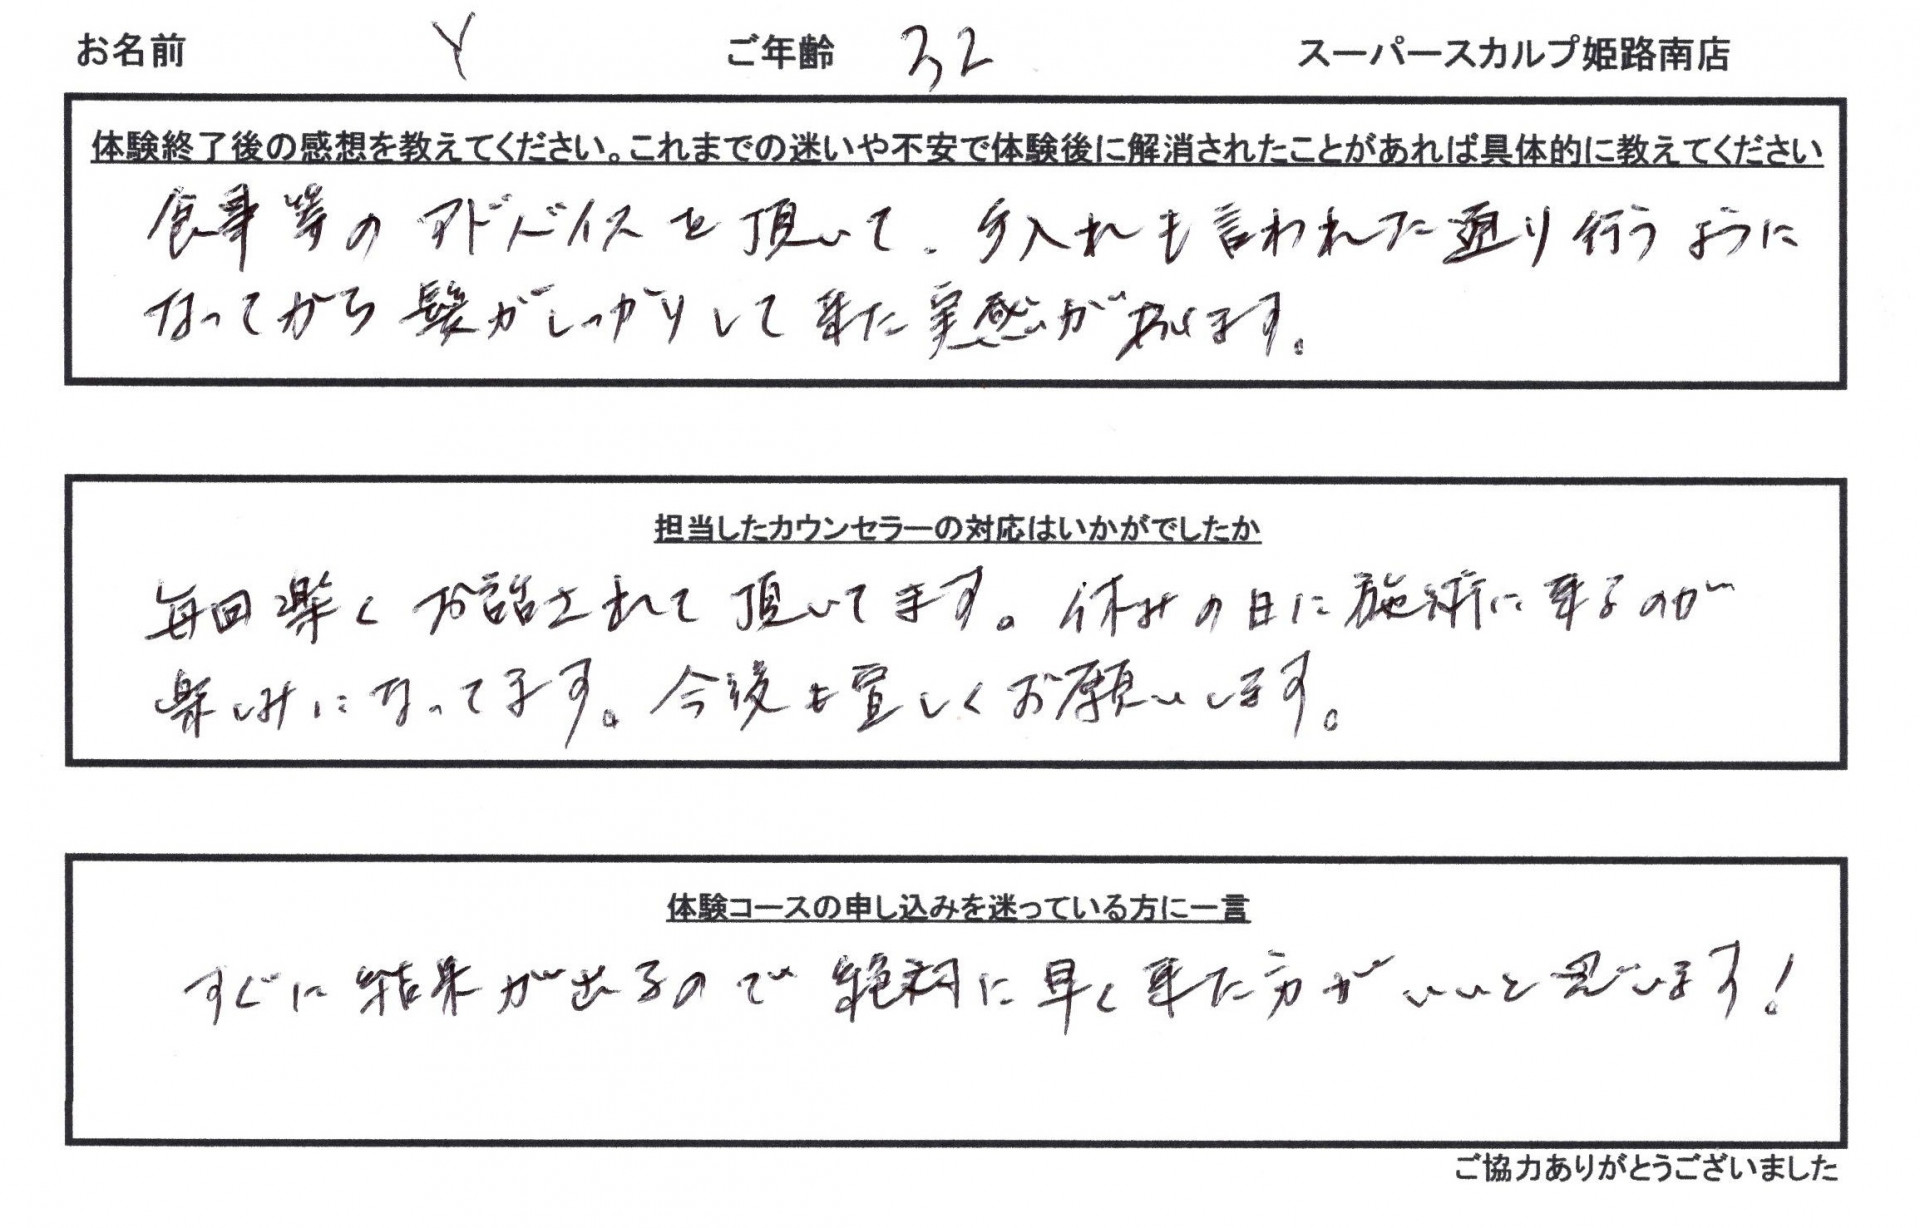 お名前 Y ご年齢 32 スーパースカルプ姫路南店
体験終了後の感想を教えてください。これまでの迷いや不安で体験後に解消されたことがあれば具体的に教えてください
食事等のアドバイスを頂いて、手入れも言われた通り行うように
なってから髪がしっかりして来た実感があります。
担当したカウンセラーの対応はいかがでしたか
毎回楽くお話されて頂いてます。休みの日に施術に来るのが
楽しみになってます。今後も宜しくお願いします。
体験コースの申し込みを迷っている方に一言
すぐに結果が出るので絶対に早く来た方がいいと思います!
ご協力ありがとうございました